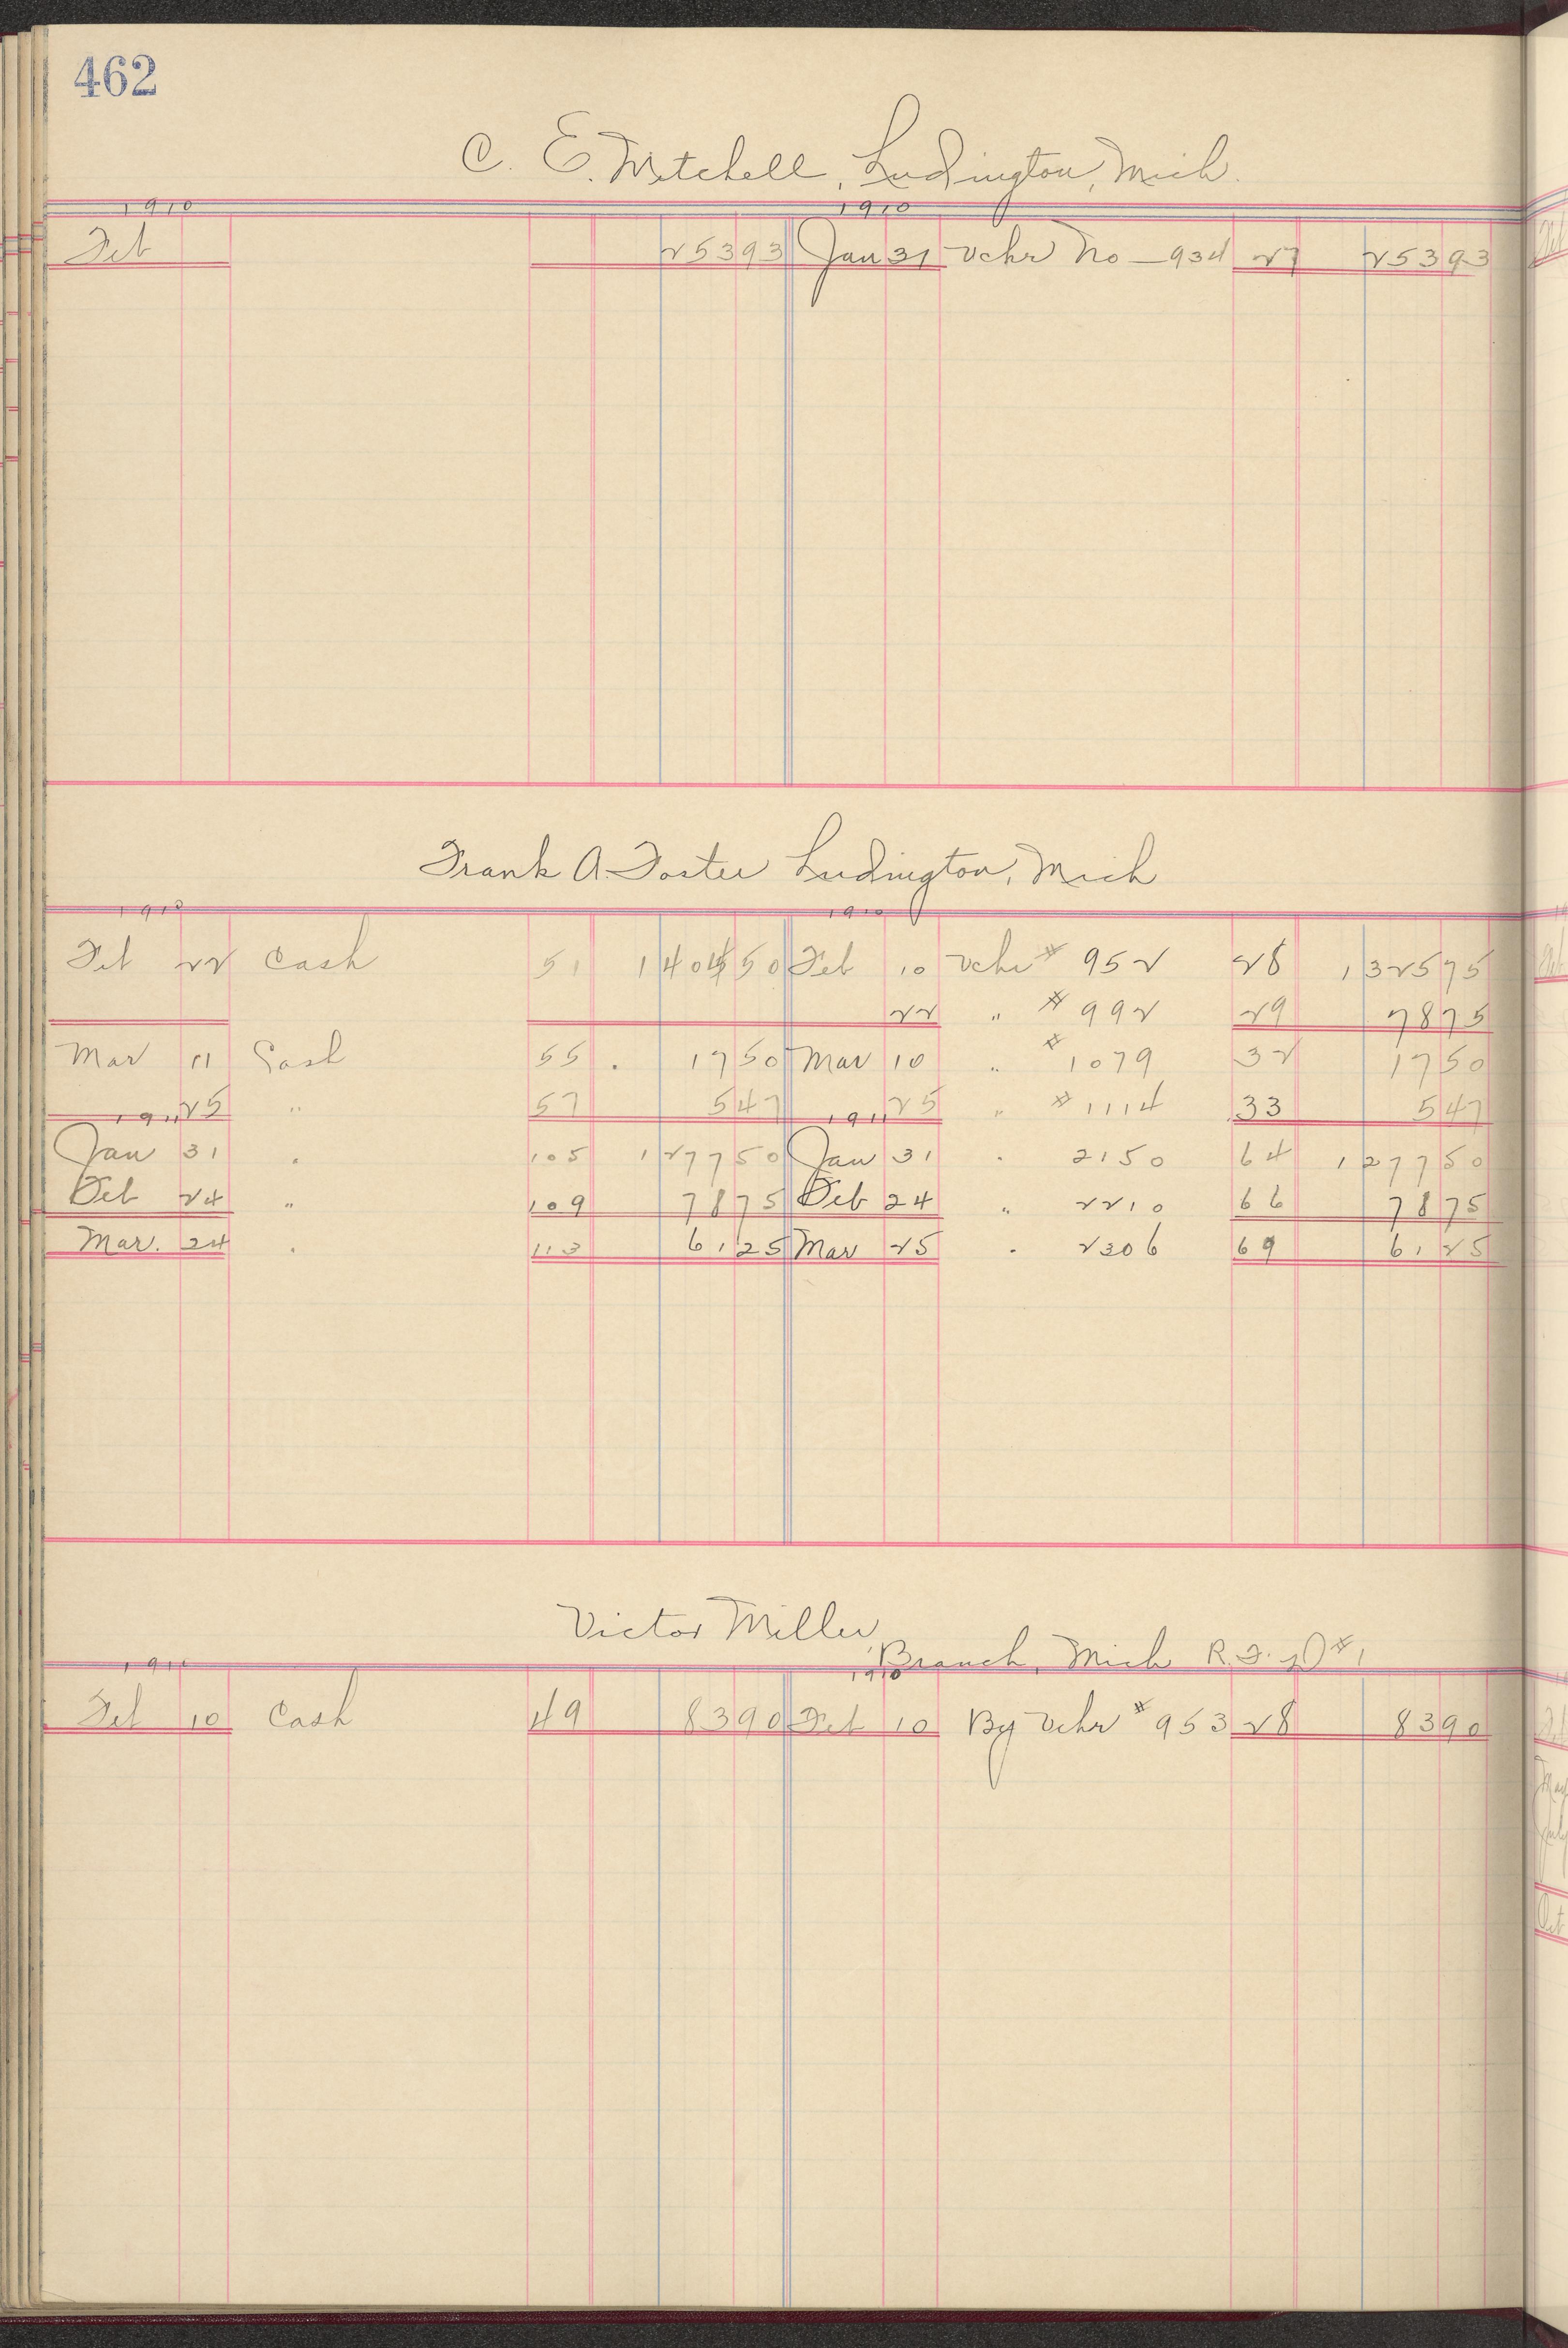 462
C. E. Mitchell, Ludington, Mich.
1910 1910
Feb 253 93 Jan 31 Vchr No — 934 27 253 93
Frank A. Foster Ludington, Mich
1910 1910
Feb 22 Cash 51 1404 50 Feb 10 Vchr # 952 28 1325 75
22 " # 992 29 78 75
Mar 11 Cash 55 . 17 50 Mar 10 " # 1079 32 17 50
25 " 57 5 47 25 " # 1114 33 5 47
1911 1911
Jan 31 " 105 1277 50 Jan 31 " 2150 64 1277 50
Feb 24 " 109 78 75 Feb 24 " 2210 66 78 75
Mar. 24 " 113 61 25 Mar 25 " 2306 69 61 25
Victor Miller,
Branch, Mich R. F. D # 1
1910 1910
Feb 10 Cash 49 83 90 Feb 10 By Vchr # 953 28 83 90